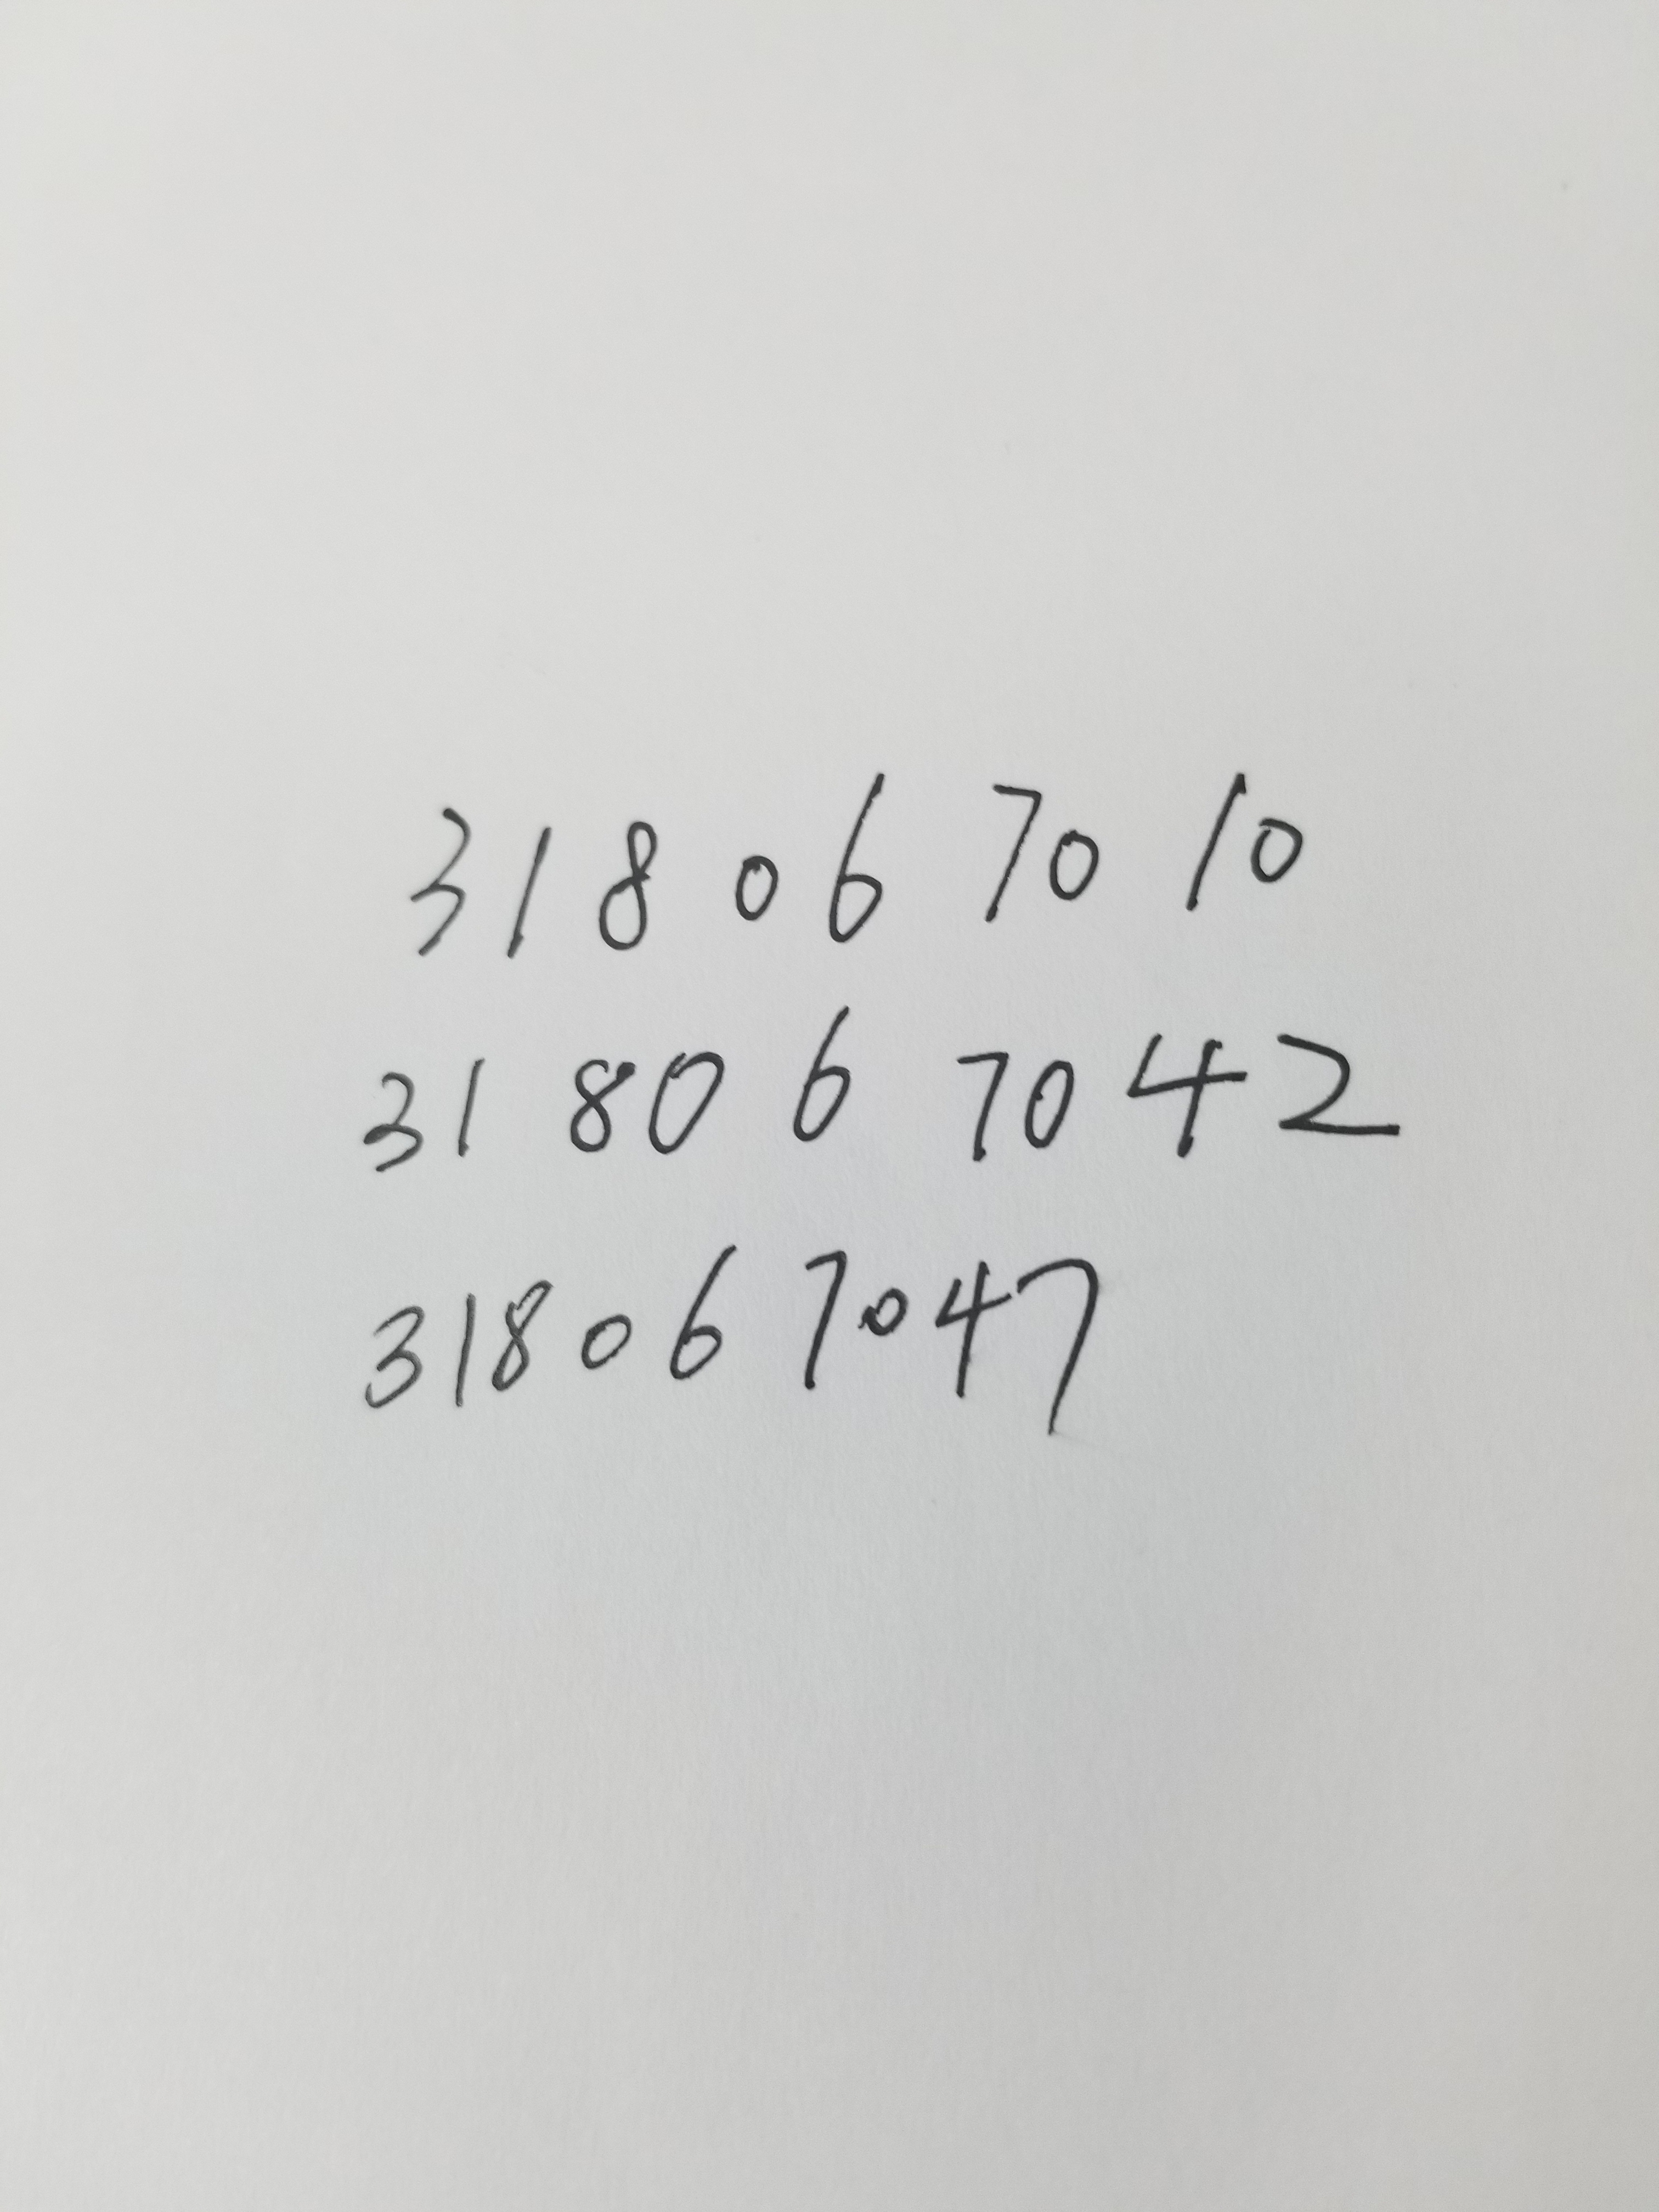 318067010
318067042
318067047